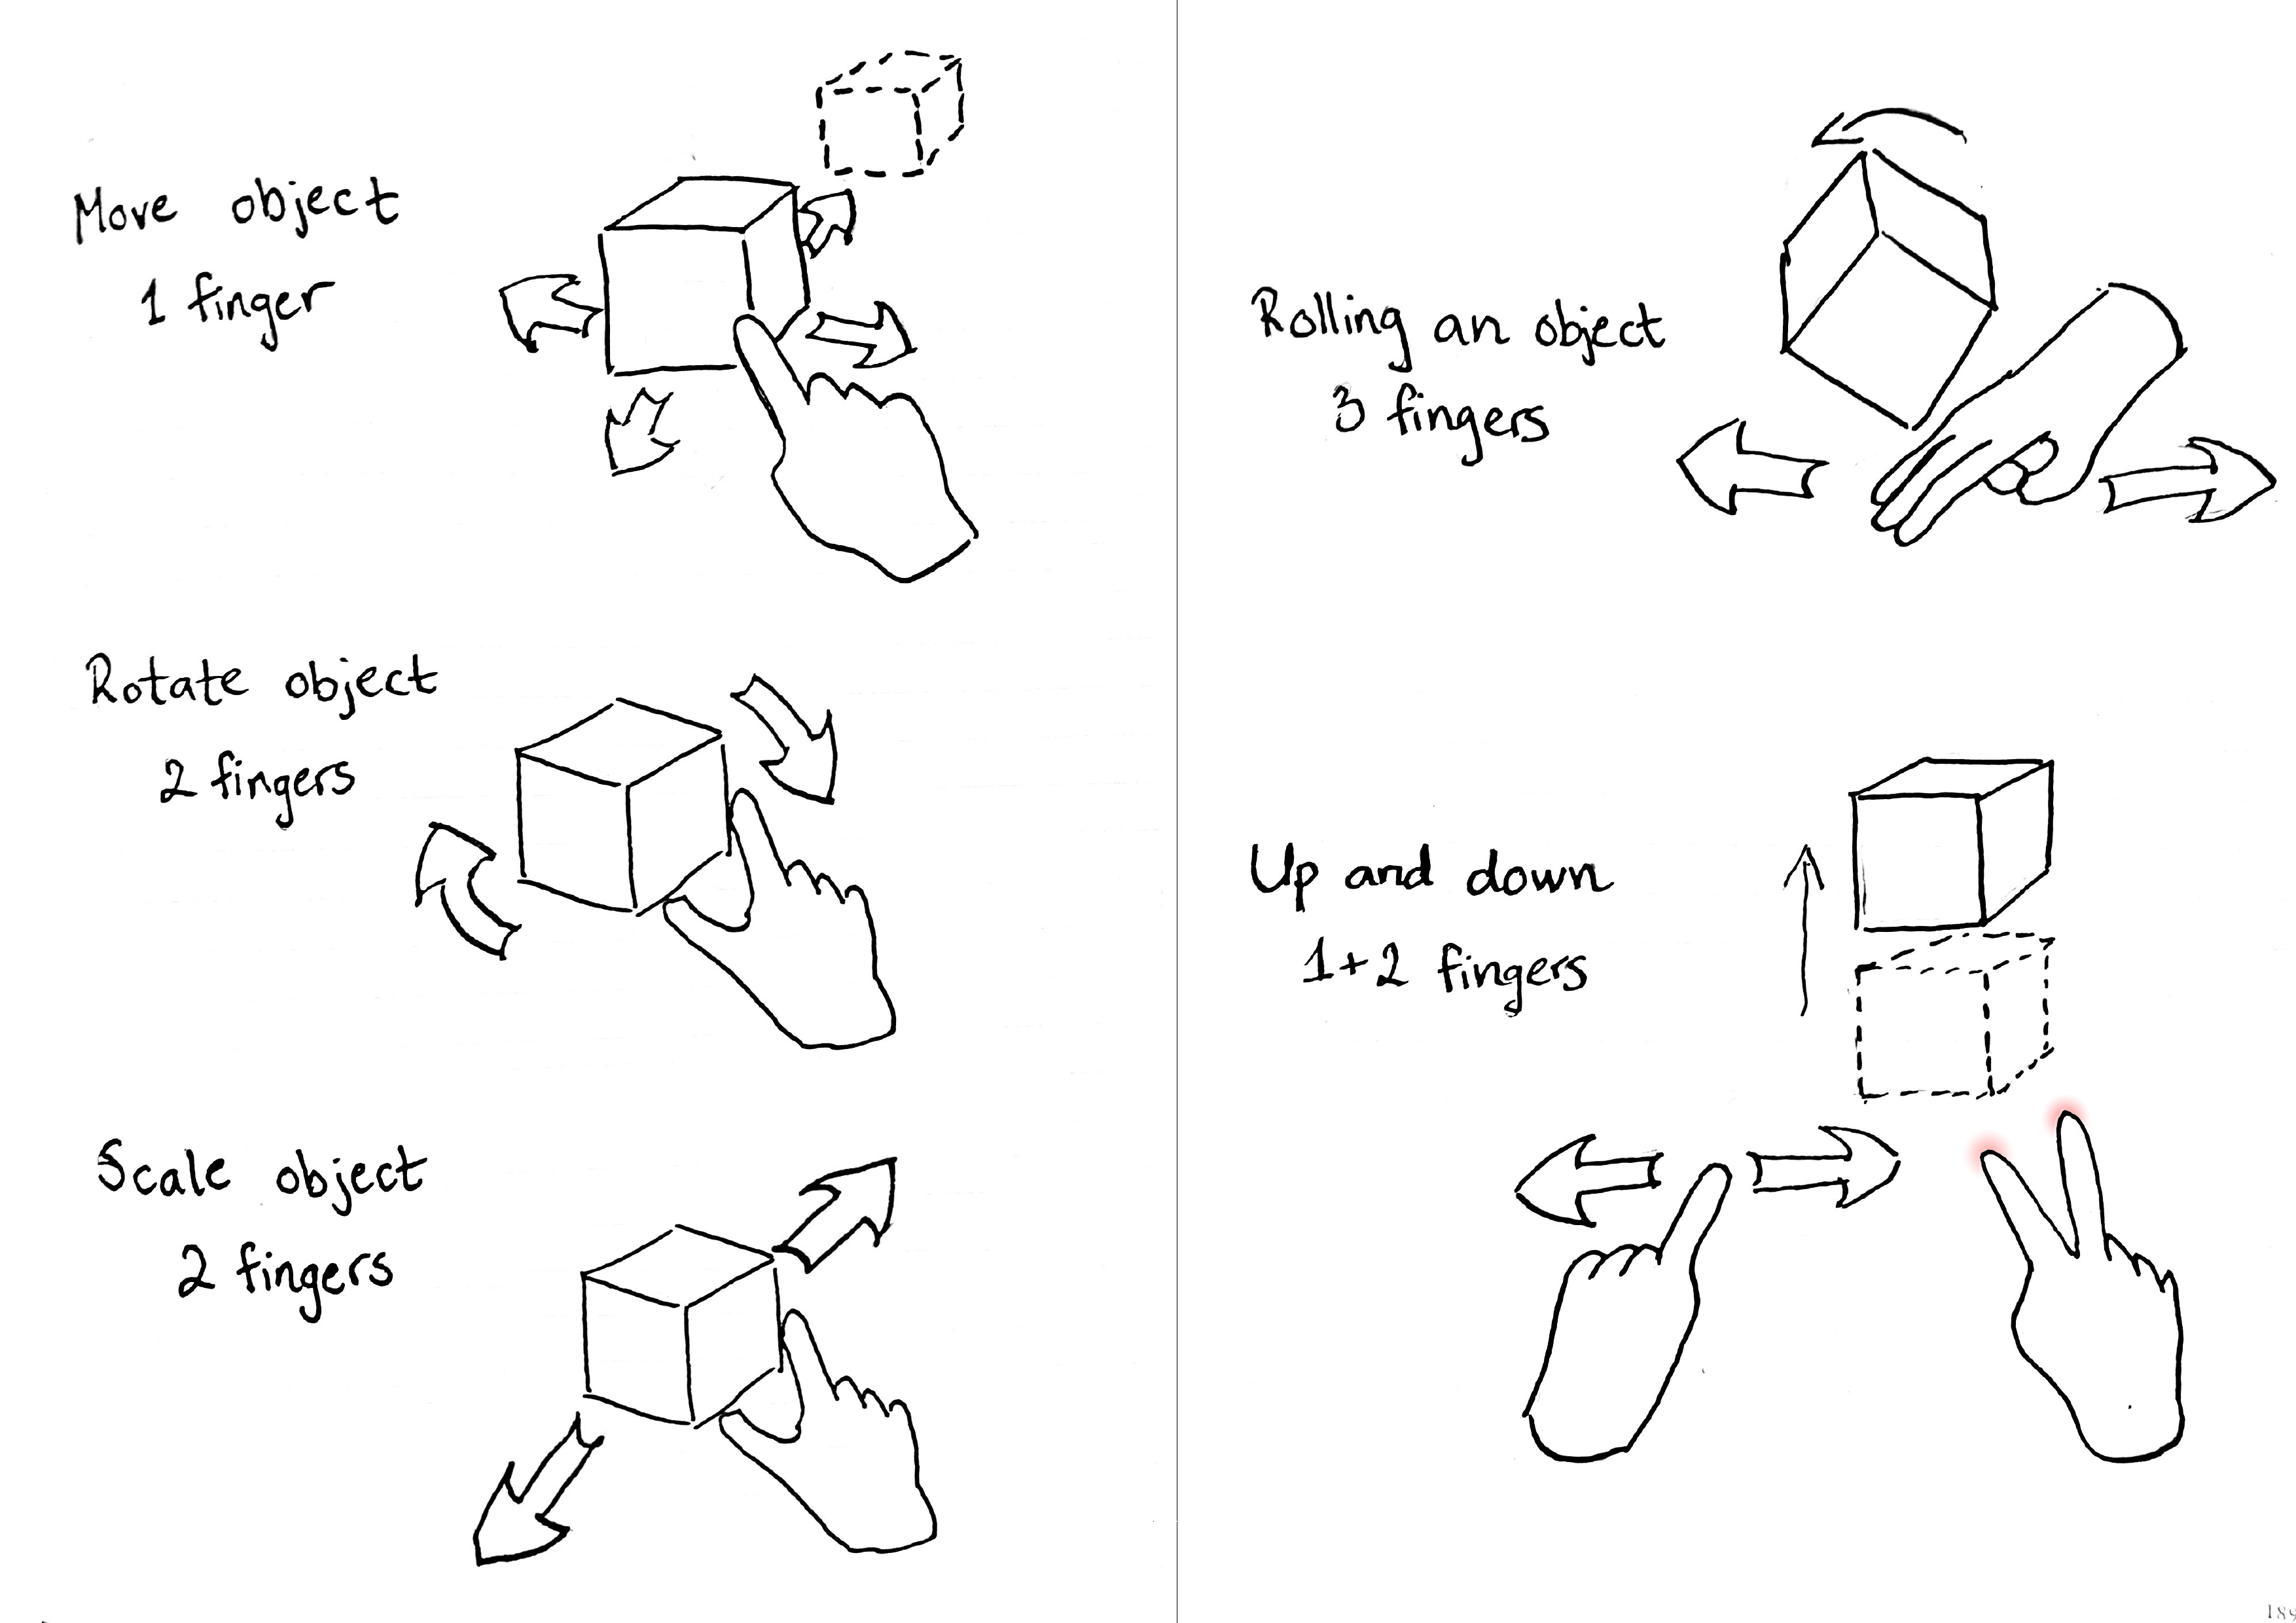 Move object
1 finger
Rotate object
2 fingers
Scale object
2 fingers
Rolling an object
3 fingers
Up and down
1+2 fingers